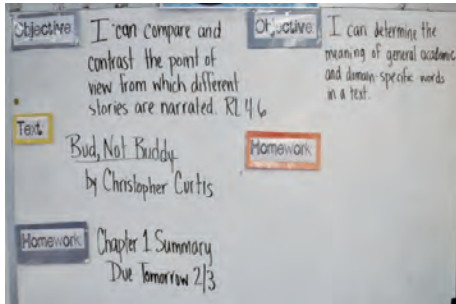 Objective I can compare and
contrast the point of
view from which different
stories are narrated. RL 4.6
Text
Bud, Not Buddy
by Christopher Curtis
Homework Chapter 1 Summary
Due Tomorrow 2/3
Objective I can determine the
meaning of general academic
and domain-specific words
in a text.
Homework